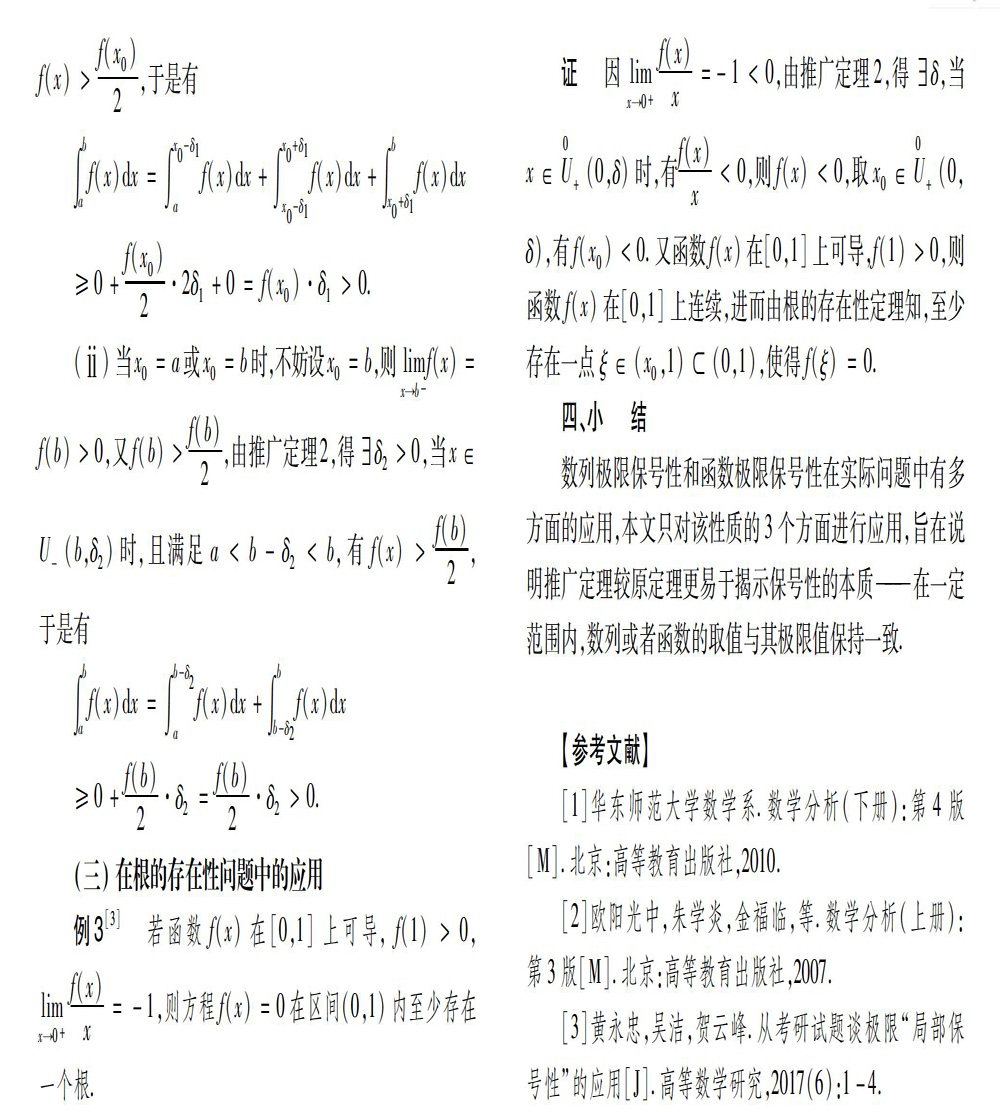 f(x) > f(x₀)/2,于是有
∫ₐᵇ f(x)dx = ∫ₐ^(x₀-δ₁) f(x)dx + ∫_(x₀-δ₁)^(x₀+δ₁) f(x)dx + ∫_(x₀+δ₁)^b f(x)dx
≥0 + f(x₀)/2 · 2δ₁ + 0 = f(x₀) · δ₁ > 0.
(ⅱ)当x₀ = a或x₀ = b时,不妨设x₀ = b,则 lim_(x→b⁻) f(x) =
f(b) > 0,又f(b) > f(b)/2,由推广定理2,得 ∃δ₂ > 0,当x ∈
U₋(b,δ₂)时,且满足 a < b - δ₂ < b,有 f(x) > f(b)/2,
于是有
∫ₐᵇ f(x)dx = ∫ₐ^(b-δ₂) f(x)dx + ∫_(b-δ₂)^b f(x)dx
≥0 + f(b)/2 · δ₂ = f(b)/2 · δ₂ > 0.
(三)在根的存在性问题中的应用
例3[3] 若函数f(x)在[0,1]上可导, f(1) > 0,
lim_(x→0⁺) f(x)/x = -1,则方程f(x) = 0在区间(0,1)内至少存在
一个根.
证 因 lim_(x→0⁺) f(x)/x = -1 < 0,由推广定理2,得 ∃δ,当
x ∈ U⁰₊(0,δ)时,有f(x)/x < 0,则f(x) < 0,取x₀ ∈ U⁰₊(0,
δ),有f(x₀) < 0. 又函数f(x)在[0,1]上可导,f(1) > 0,则
函数f(x)在[0,1]上连续,进而由根的存在性定理知,至少
存在一点 ξ ∈ (x₀,1) ⊂ (0,1),使得f(ξ) = 0.
四、小 结
数列极限保号性和函数极限保号性在实际问题中有多
方面的应用,本文只对该性质的3个方面进行应用,旨在说
明推广定理较原定理更易于揭示保号性的本质——在一定
范围内,数列或者函数的取值与其极限值保持一致.
【参考文献】
[1]华东师范大学数学系.数学分析(下册):第4版
[M].北京:高等教育出版社,2010.
[2]欧阳光中,朱学炎,金福临,等.数学分析(上册):
第3版[M].北京:高等教育出版社,2007.
[3]黄永忠,吴洁,贺云峰.从考研试题谈极限“局部保
号性”的应用[J].高等数学研究,2017(6):1-4.